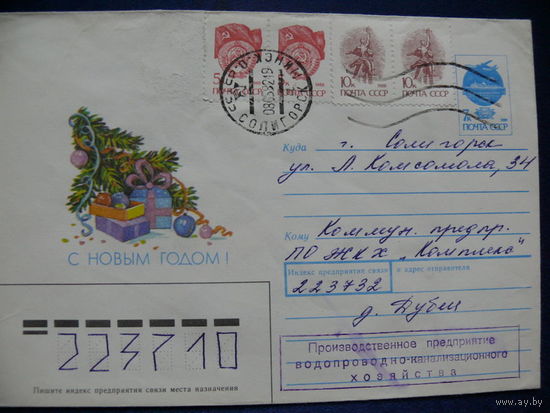 5к 1988 ПОЧТА СССР
10к 1988 ПОЧТА СССР
10к 1988 ПОЧТА СССР
7к ПОЧТА СССР
СОЛИГОРСК
С НОВЫМ ГОДОМ!
Куда г. Солигорск
ул. Л. Комсомола, 34
Кому Коммун. предпр.
ПО ЖКХ „Комплекс"
Индекс предприятия связи и адрес отправителя
223732
д. Дубеи
Производственное предприятие
водопроводно-канализационного
хозяйства
223710
Пишите индекс предприятия связи места назначения
www.ay.by